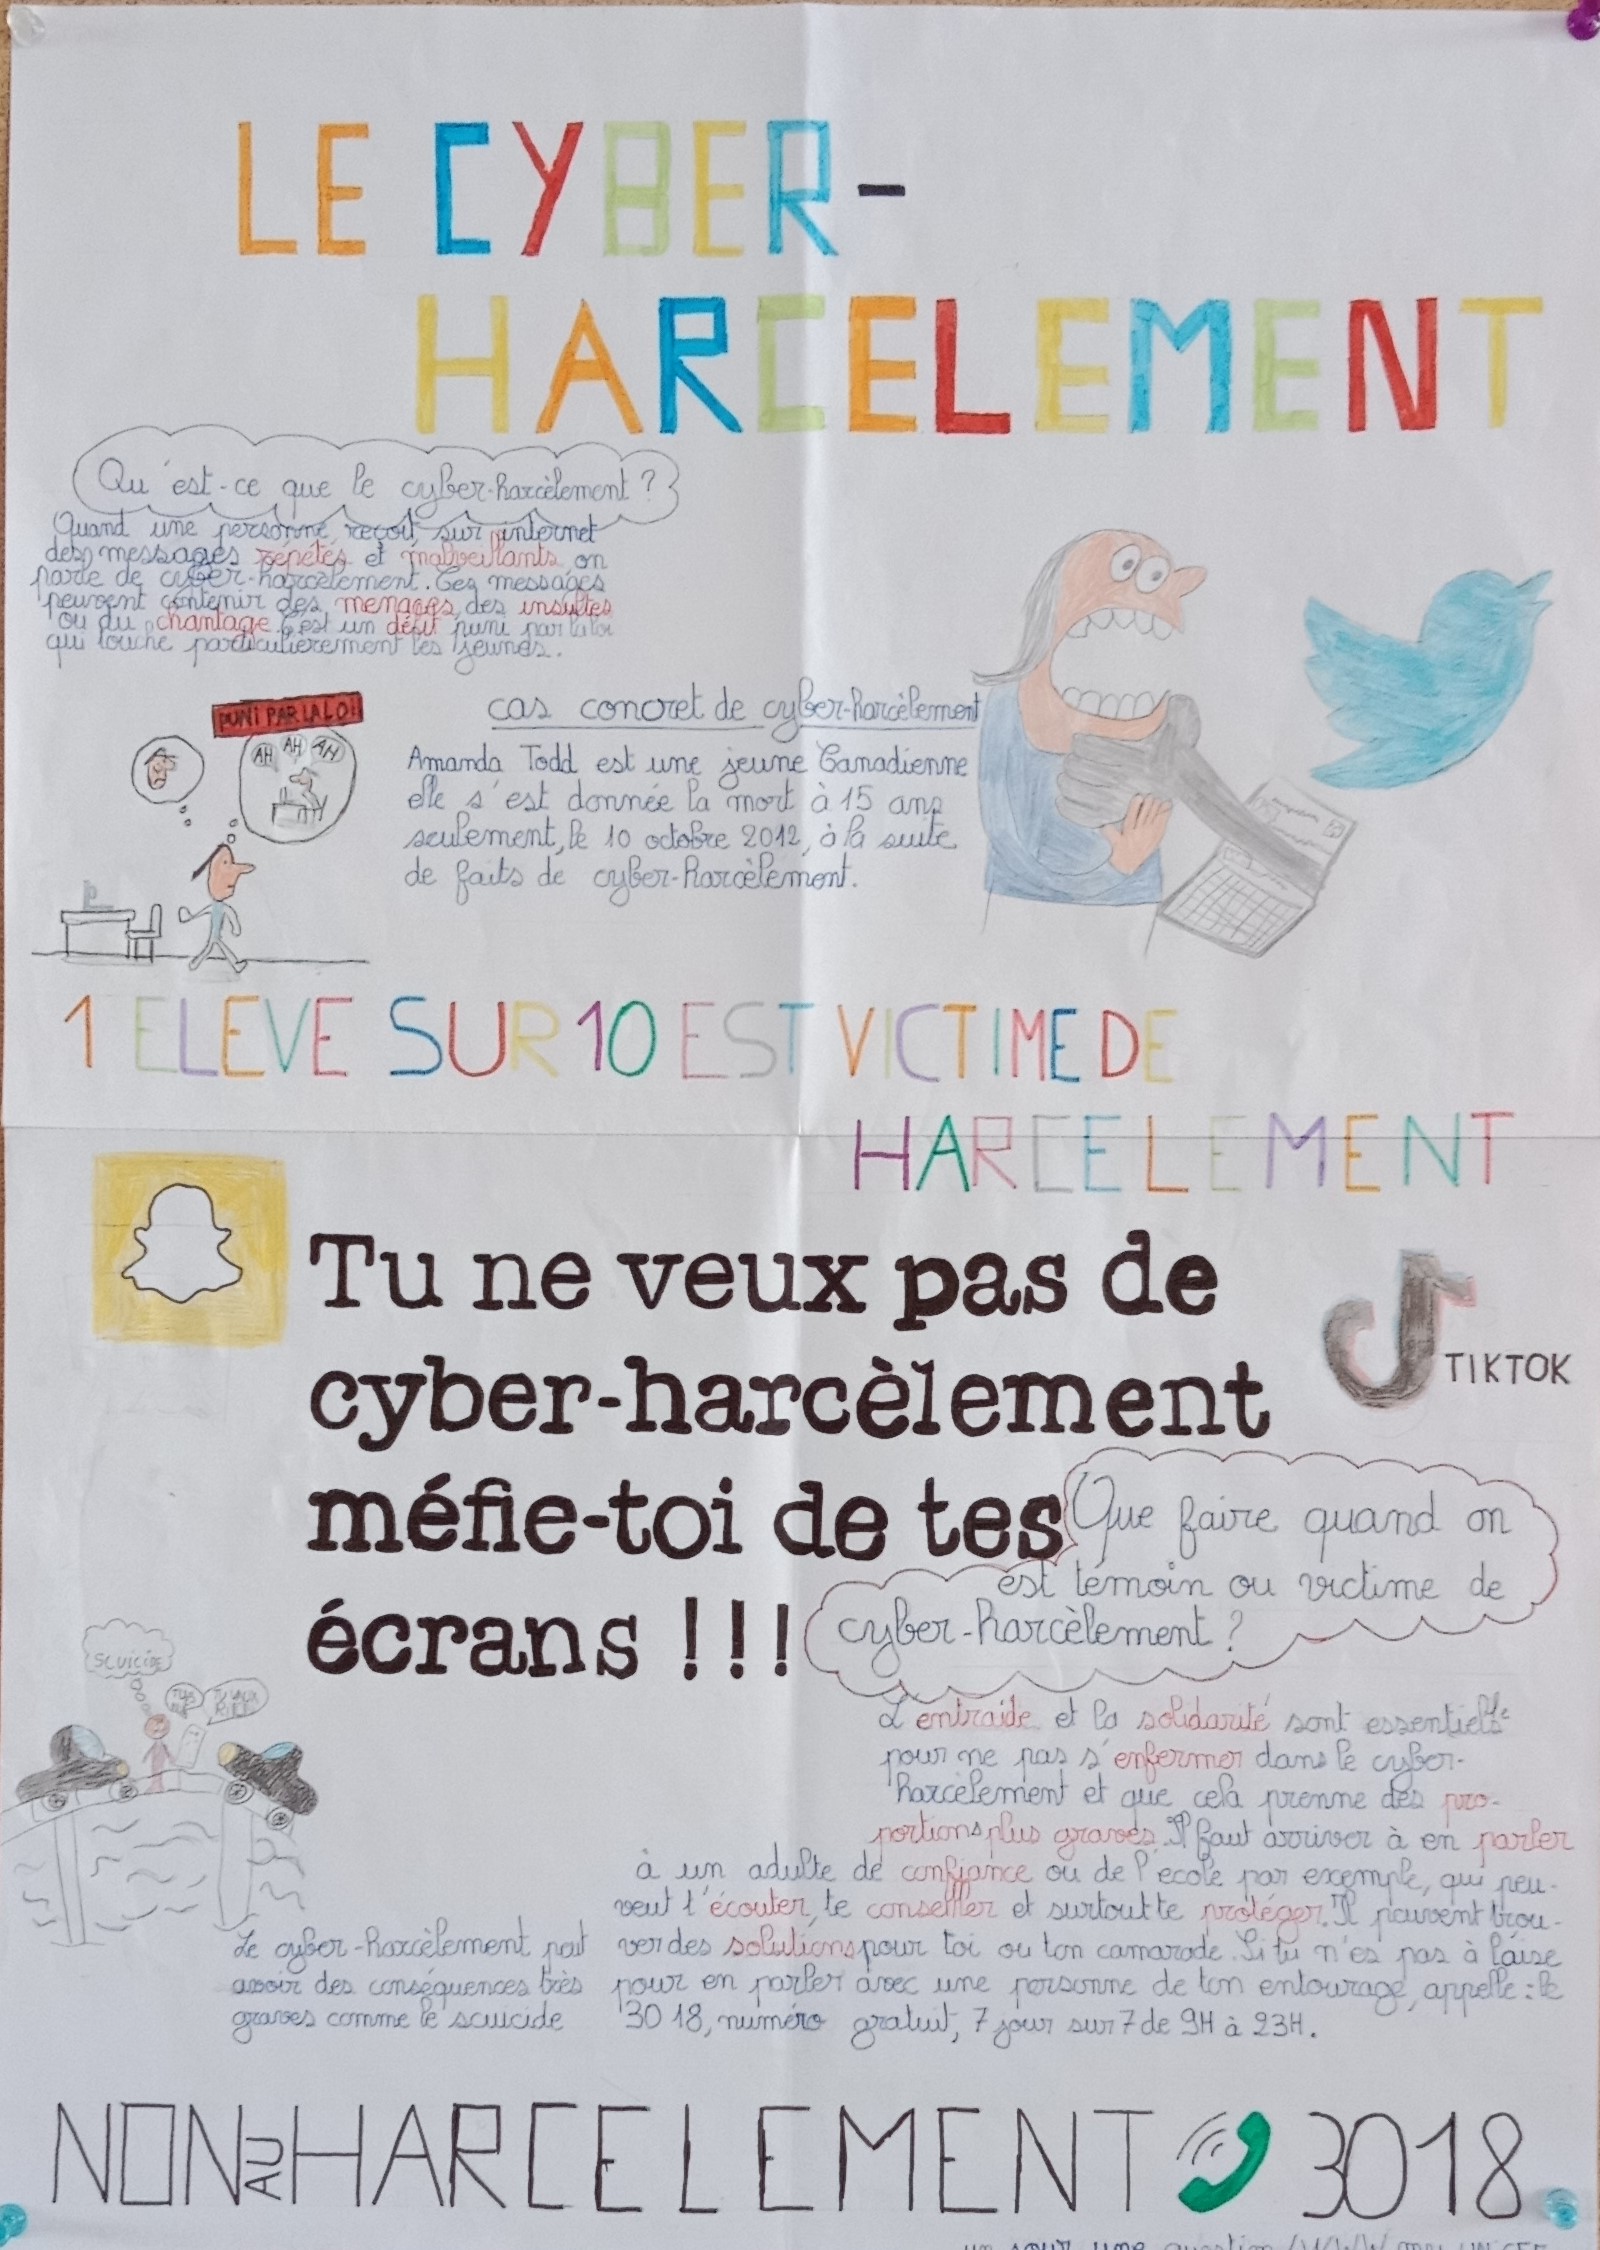 LE CYBER-
HARCELEMENT
Qu'est-ce que le cyber-harcèlement ?
Quand une personne, reçoit, sur internet
des messages répétés et malveillants, on
parle de cyber-harcèlement. Ces messages
peuvent contenir des menaces, des insultes
ou du chantage. C'est un délit puni par la loi
qui touche particulièrement les jeunes.
PUNI PAR LA LOI
AH AH AH
cas concret de cyber-harcèlement
Amanda Todd est une jeune Canadienne
elle s'est donnée la mort à 15 ans
seulement, le 10 octobre 2012, à la suite
de faits de cyber-harcèlement.
1 ELEVE SUR 10 EST VICTIME DE
HARCELEMENT
Tu ne veux pas de
cyber-harcèlement
méfie-toi de tes
écrans !!!
TIKTOK
Que faire quand on
est témoin ou victime de
cyber-harcèlement ?
L'entraide et la solidarité sont essentiels
pour ne pas s'enfermer dans le cyber-
harcèlement et que cela prenne des pro-
portions plus graves. Il faut arriver à en parler
à un adulte de confiance ou de l'école par exemple, qui peu-
vent t'écouter, te conseiller et surtout te protéger. Il peuvent trou-
ver des solutions pour toi ou ton camarade. Si tu n'es pas à l'aise
pour en parler avec une personne de ton entourage, appelle : le
30 18, numéro gratuit, 7 jour sur 7 de 9H à 23H.
SCUICIDE
Le cyber-harcèlement peut
avoir des conséquences très
graves comme le scuicide
NON AU HARCELEMENT 3018